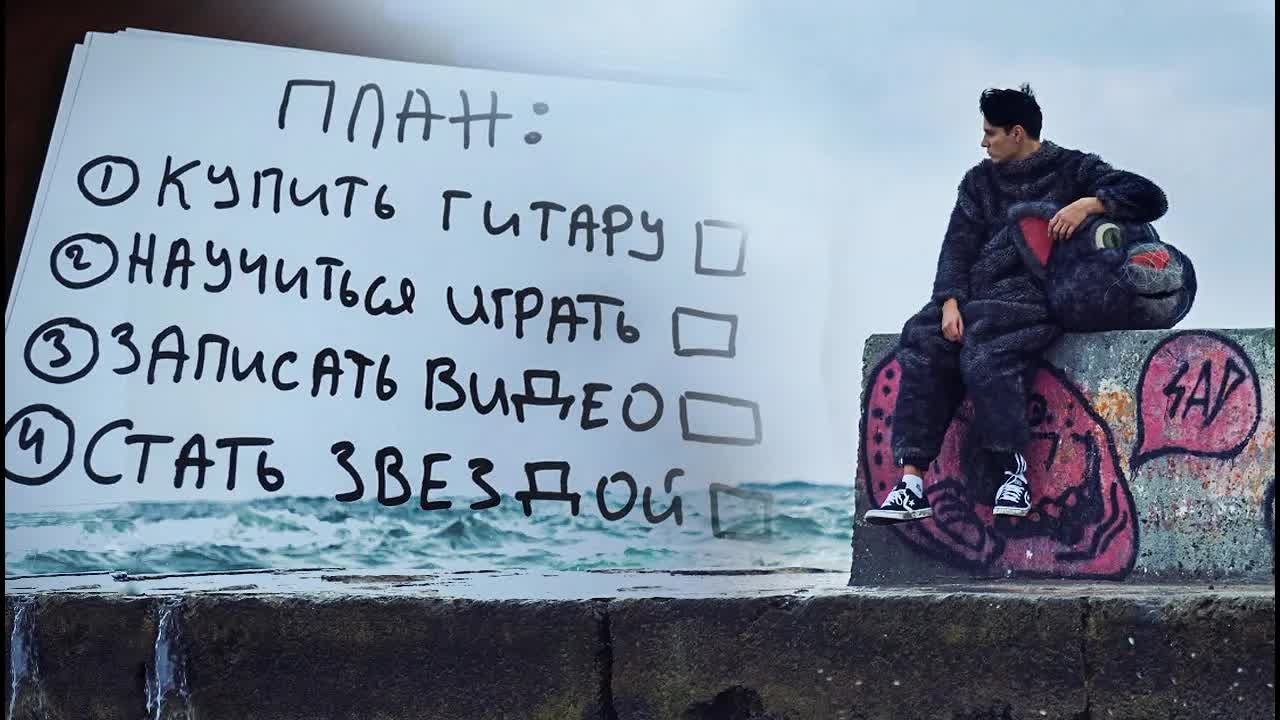 ПЛАН:
1 КУПИТЬ ГИТАРУ
2 НАУЧИТЬСЯ ИГРАТЬ
3 ЗАПИСАТЬ ВИДЕО
4 СТАТЬ ЗВЕЗДОЙ
SAD